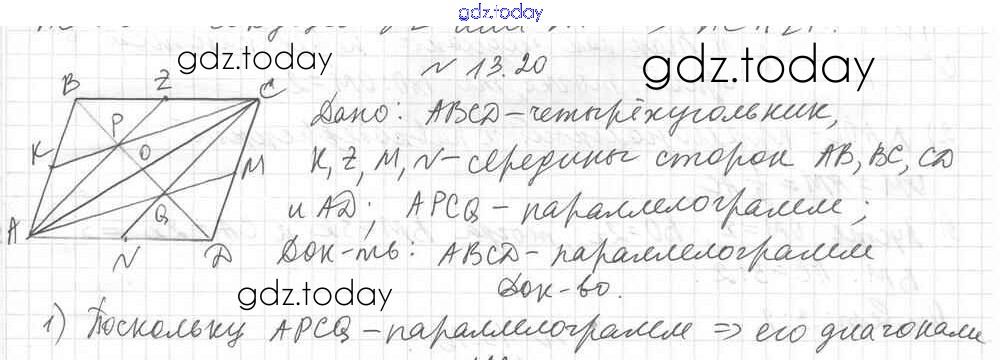 gdz.today
gdz.today
gdz.today
N 13.20
B Z C
P
O
K
M
Q
A
N D
Дано: ABCD – четырёхугольник,
K, Z, M, N – середины сторон AB, BC, CD
и AD; APCQ – параллелограмм;
Док-ть: ABCD – параллелограмм
Док-во.
gdz.today
1) Поскольку APCQ – параллелограмм => его диагонали